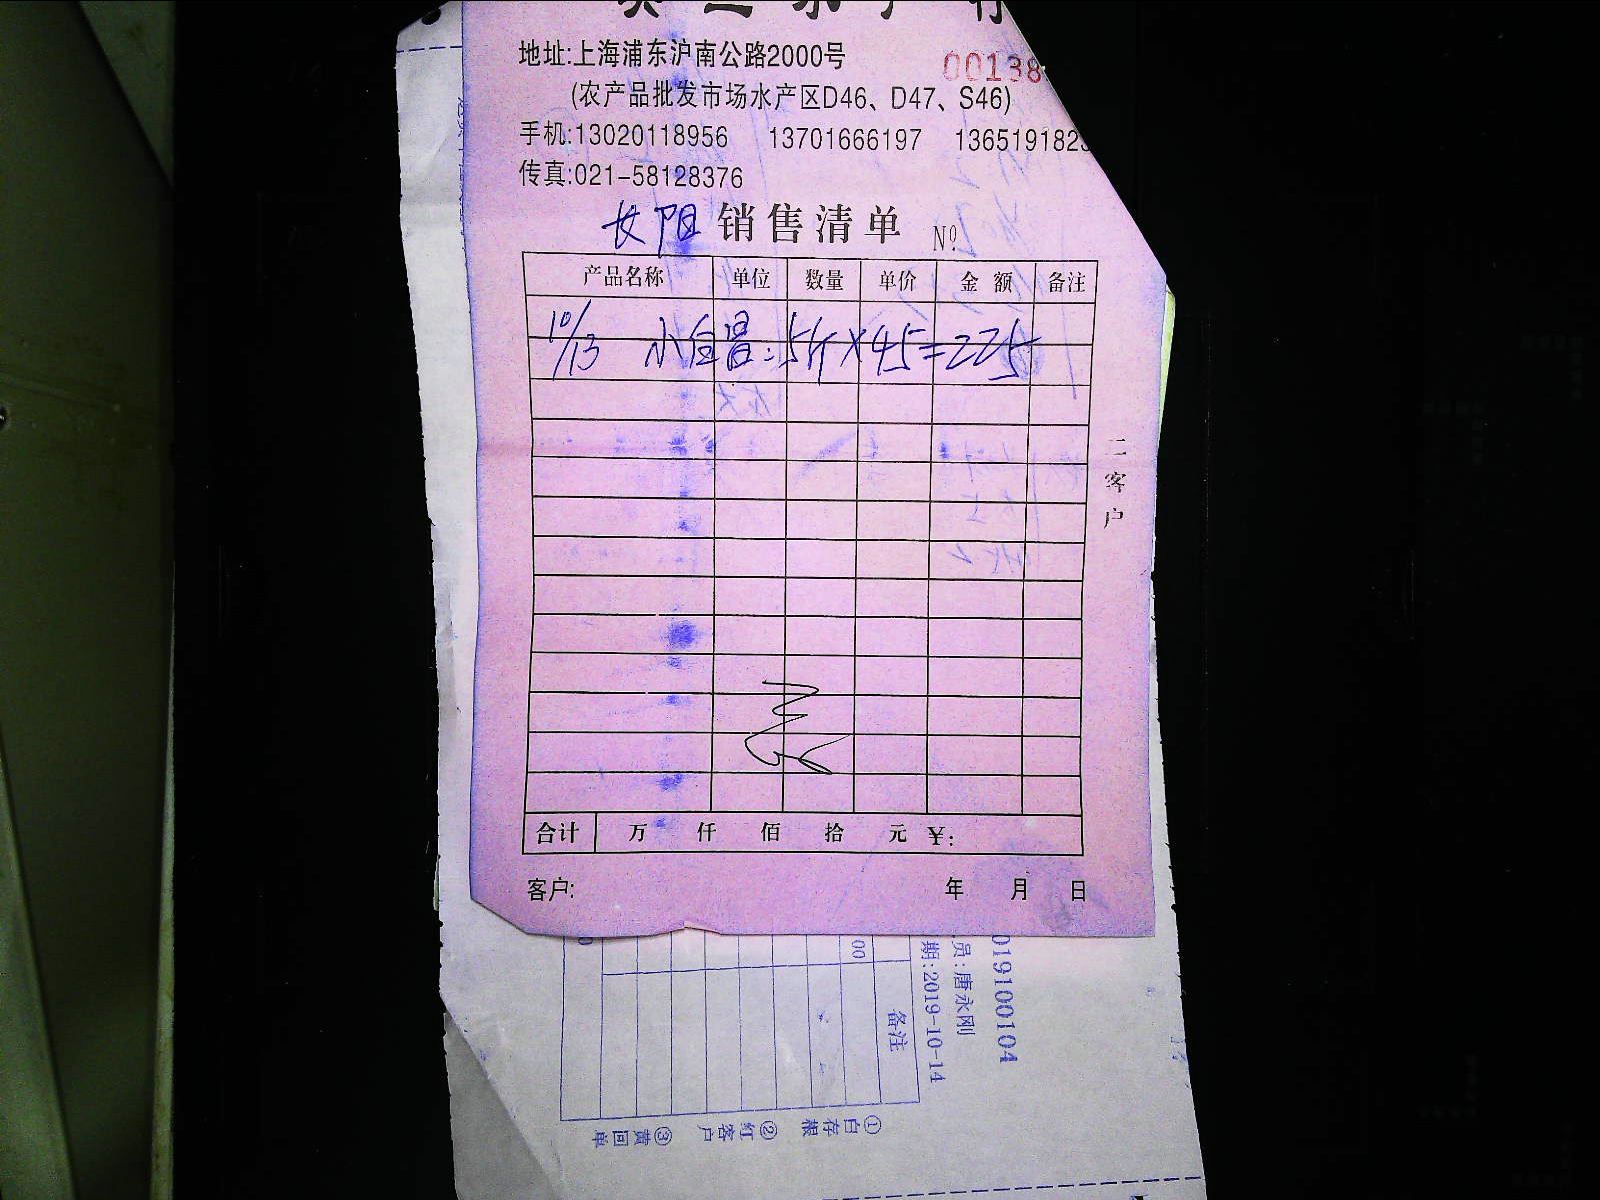 地址:上海浦东沪南公路2000号
00138
(农产品批发市场水产区D46、D47、S46)
手机:13020118956 13701666197 1365191823
传真:021-58128376
长阳 销售清单 №
产品名称 单位 数量 单价 金额 备注
10/13 小白昌:5斤×45=225
二客户
合计 万 仟 佰 拾 元 ¥:
客户: 年 月 日
019100104
员:唐永刚
期:2019-10-14
备注
00
①白存根 ②红客户 ③黄回单